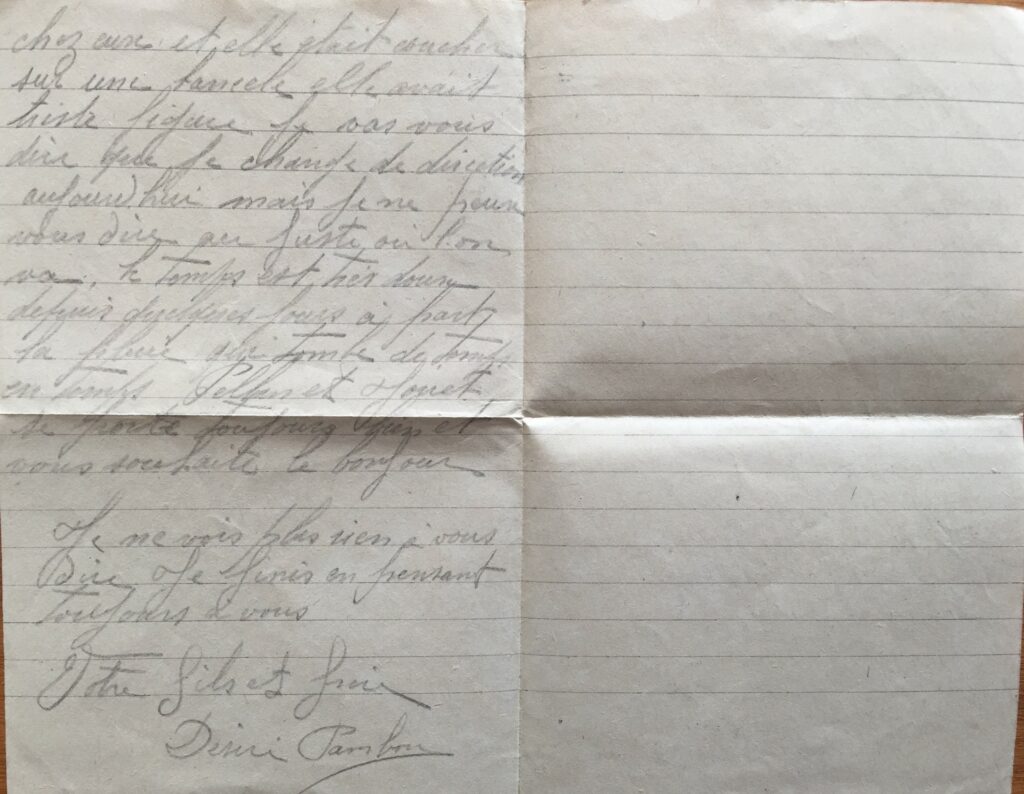 chez eux et elle était coucher
sur une elle avait
triste figure Je vas vous
dire que je change de direction
aujourd'hui mais je ne peux
vous dire au juste où l'on
va. le temps est très doux
depuis quelques jours à part
la pluie qui tombe de temps
en temps et
se porte toujours bien et
vous souhaite le bonjour
Je ne vois plus rien à vous
Dire Je finis en pensant
toujours à vous
Votre fils et frère
Désiré